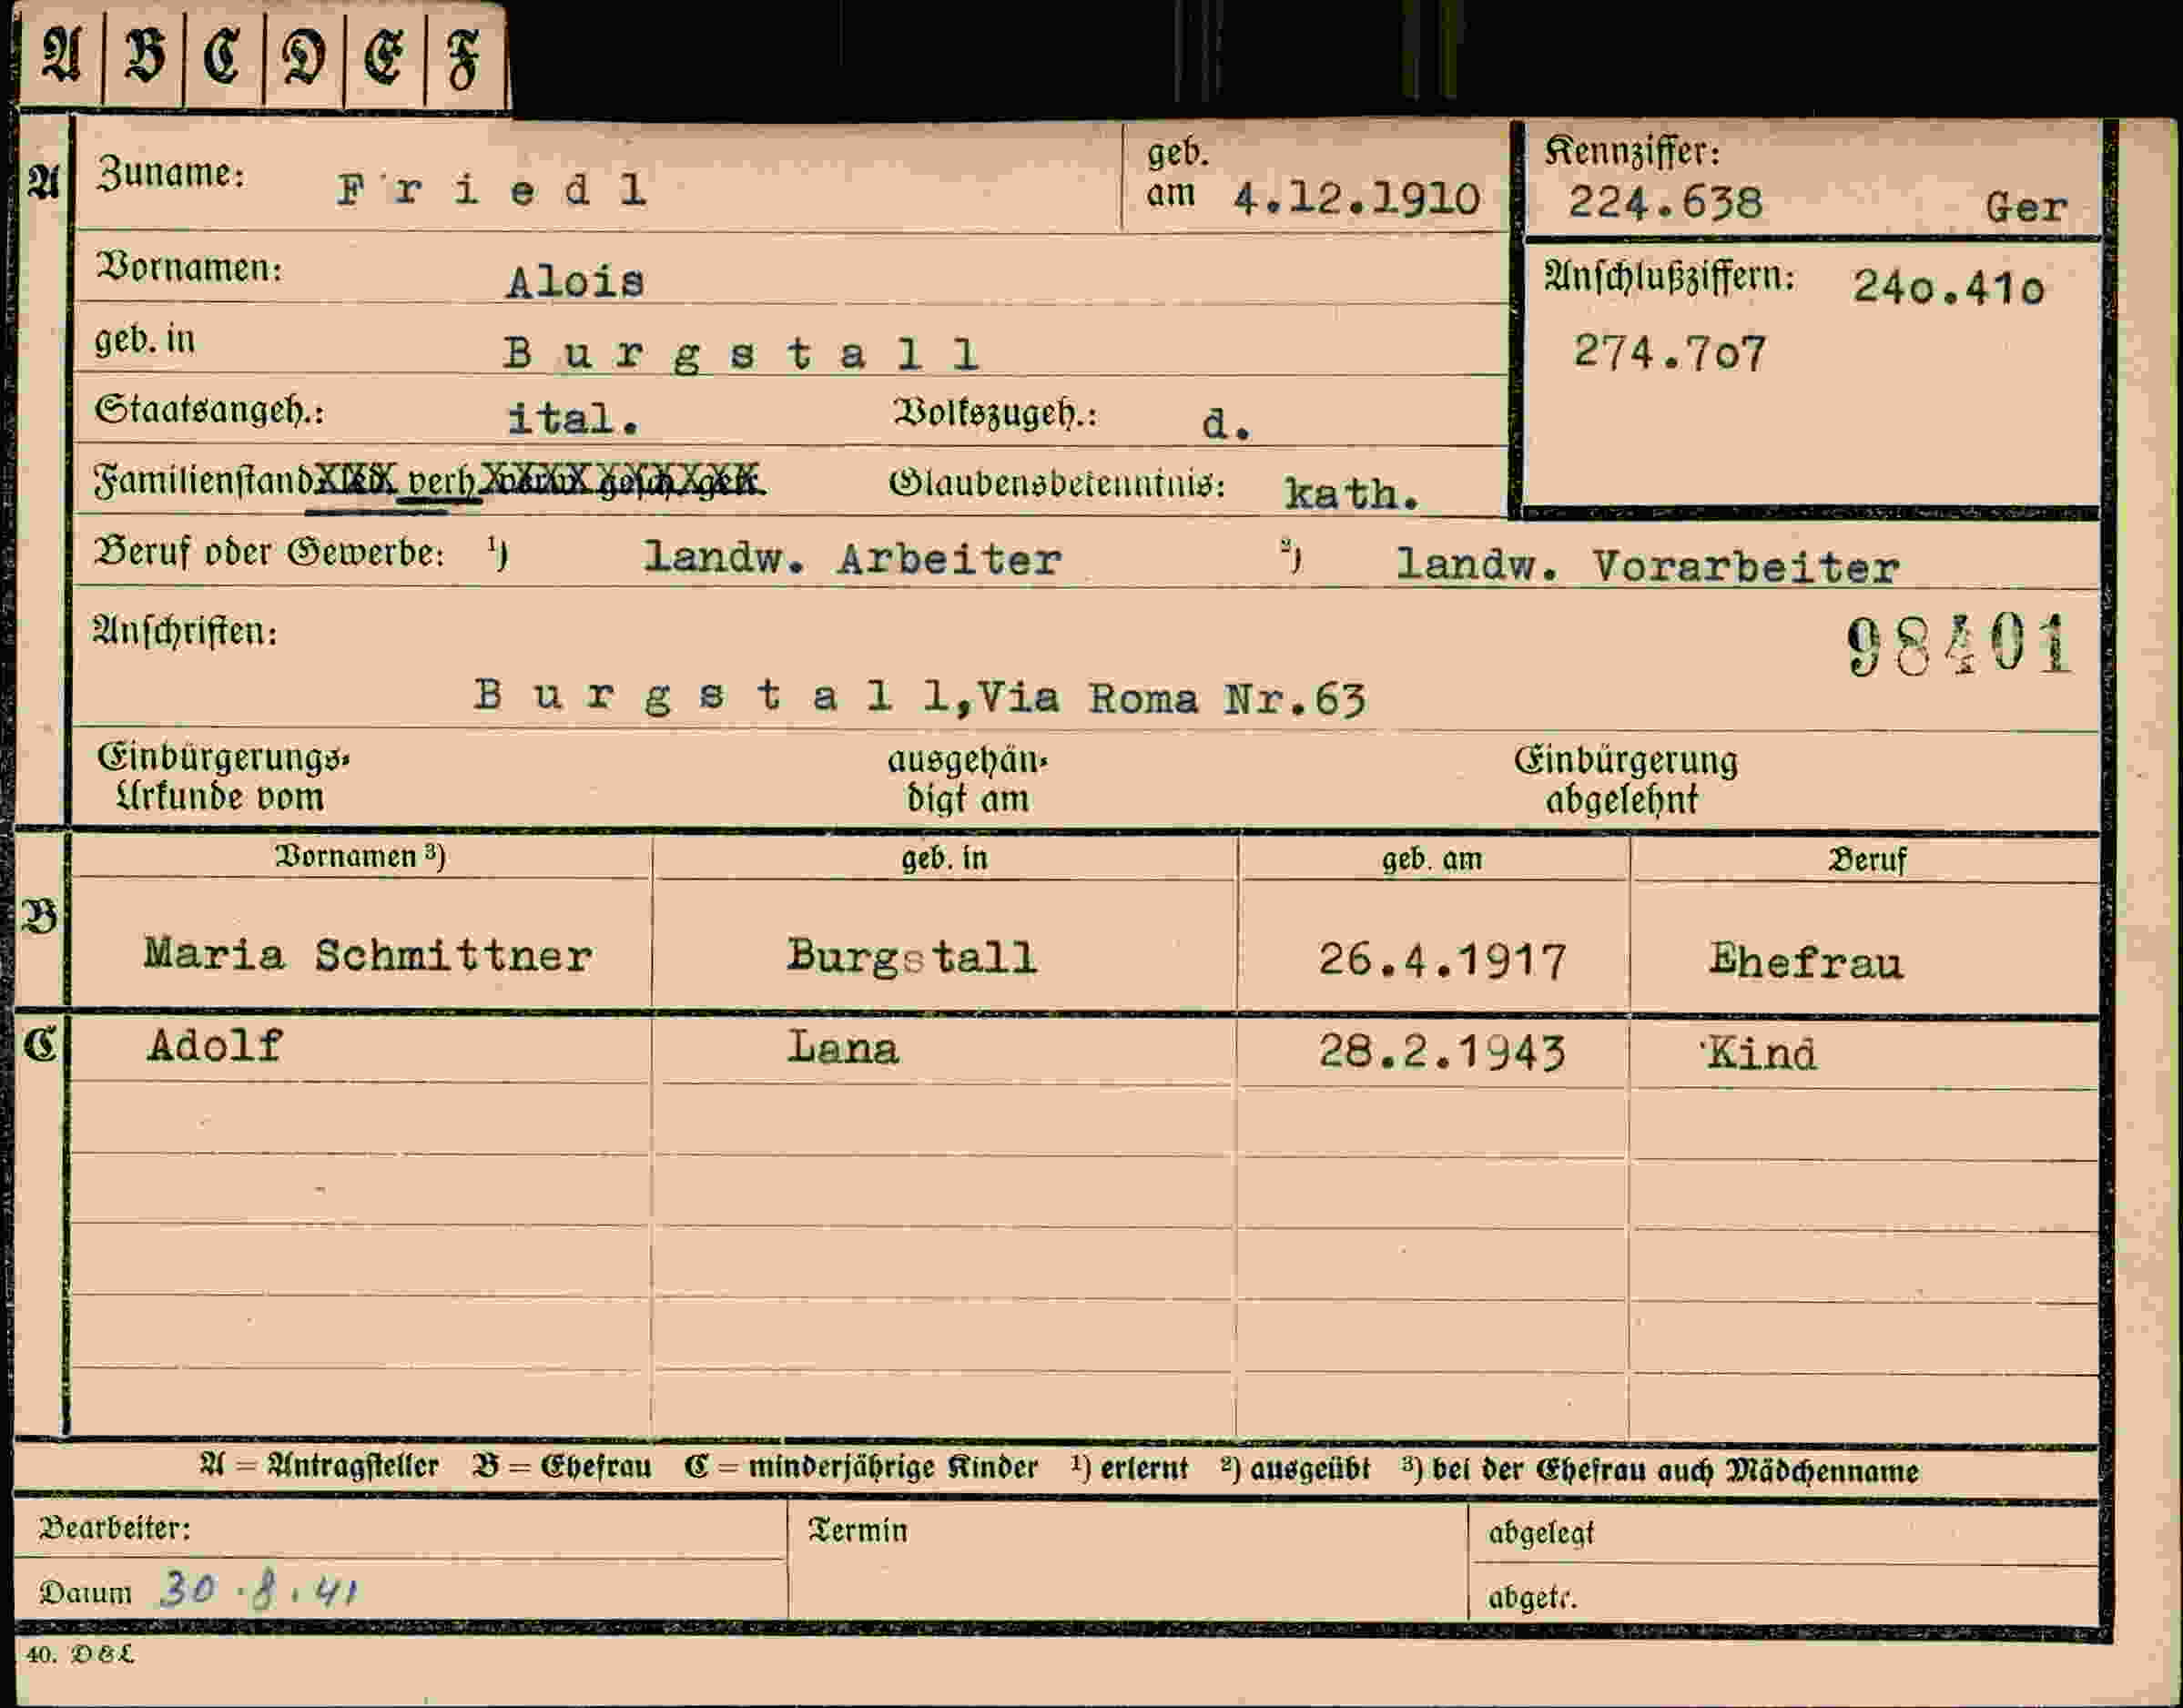 A B C D E F
A Zuname: F r i e d l geb. am 4.12.1910 Kennziffer: 224.638 Ger
Vornamen: Alois Anschlußziffern: 24o.41o
geb. in B u r g s t a l l 274.7o7
Staatsangeh.: ital. Volkszugeh.: d.
Familienstand led. verh. verw. gesch. get. Glaubensbekenntnis: kath.
Beruf oder Gewerbe: ¹) landw. Arbeiter ²) landw. Vorarbeiter
Anschriften: 98401
B u r g s t a l l,Via Roma Nr.63
Einbürgerungs- ausgehän- Einbürgerung
Urkunde vom digt am abgelehnt
Vornamen ³) geb. in geb. am Beruf
B Maria Schmittner Burgstall 26.4.1917 Ehefrau
C Adolf Lana 28.2.1943 Kind
A = Antragsteller B = Ehefrau C = minderjährige Kinder ¹) erlernt ²) ausgeübt ³) bei der Ehefrau auch Mädchenname
Bearbeiter: Termin abgelegt
Datum 30.8.41 abgetr.
40. D&L